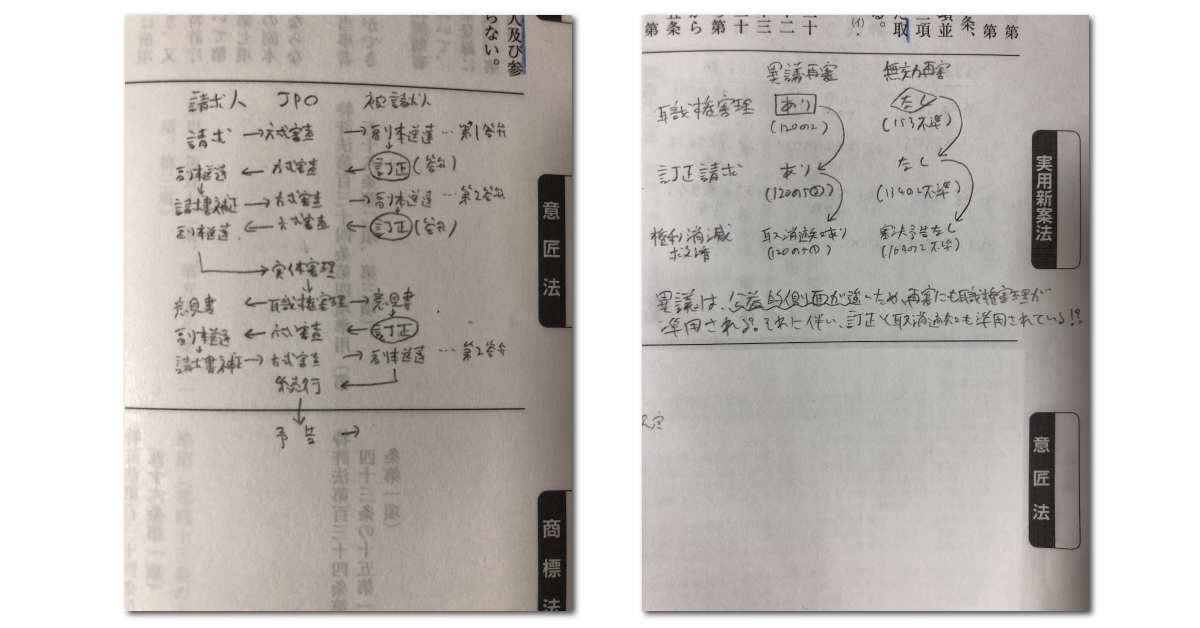 人及び参
らない。
請求人 JPO 被請求人
請求 → 方式審査 → 副本送達 … 第1答弁
副本送達 ← 方式審査 ← 訂正(答弁)
請求書補正 → 方式審査 → 副本送達 … 第2答弁
副本送達 ← 方式審査 ← 訂正(答弁)
→ 実体審理
意見書 ← 職権審理 → 意見書
副本送達 ← 方式審査 ← 訂正
請求書補正 → 方式審査 → 副本送達 … 第2答弁
続行 ←
予告 →
意匠法
商標法
異議再審 無効再審
職権審理 あり なし
(120の2) (153不準)
訂正請求 あり なし
(120の5②) (134の2不準)
権利消滅 取消通知あり 審決予告なし
求済 (120の5①) (164の2不準)
異議は、公益的側面が強いため、再審にも職権審理が
準用される。それに伴い、訂正と取消通知も準用されている!!
実用新案法
意匠法